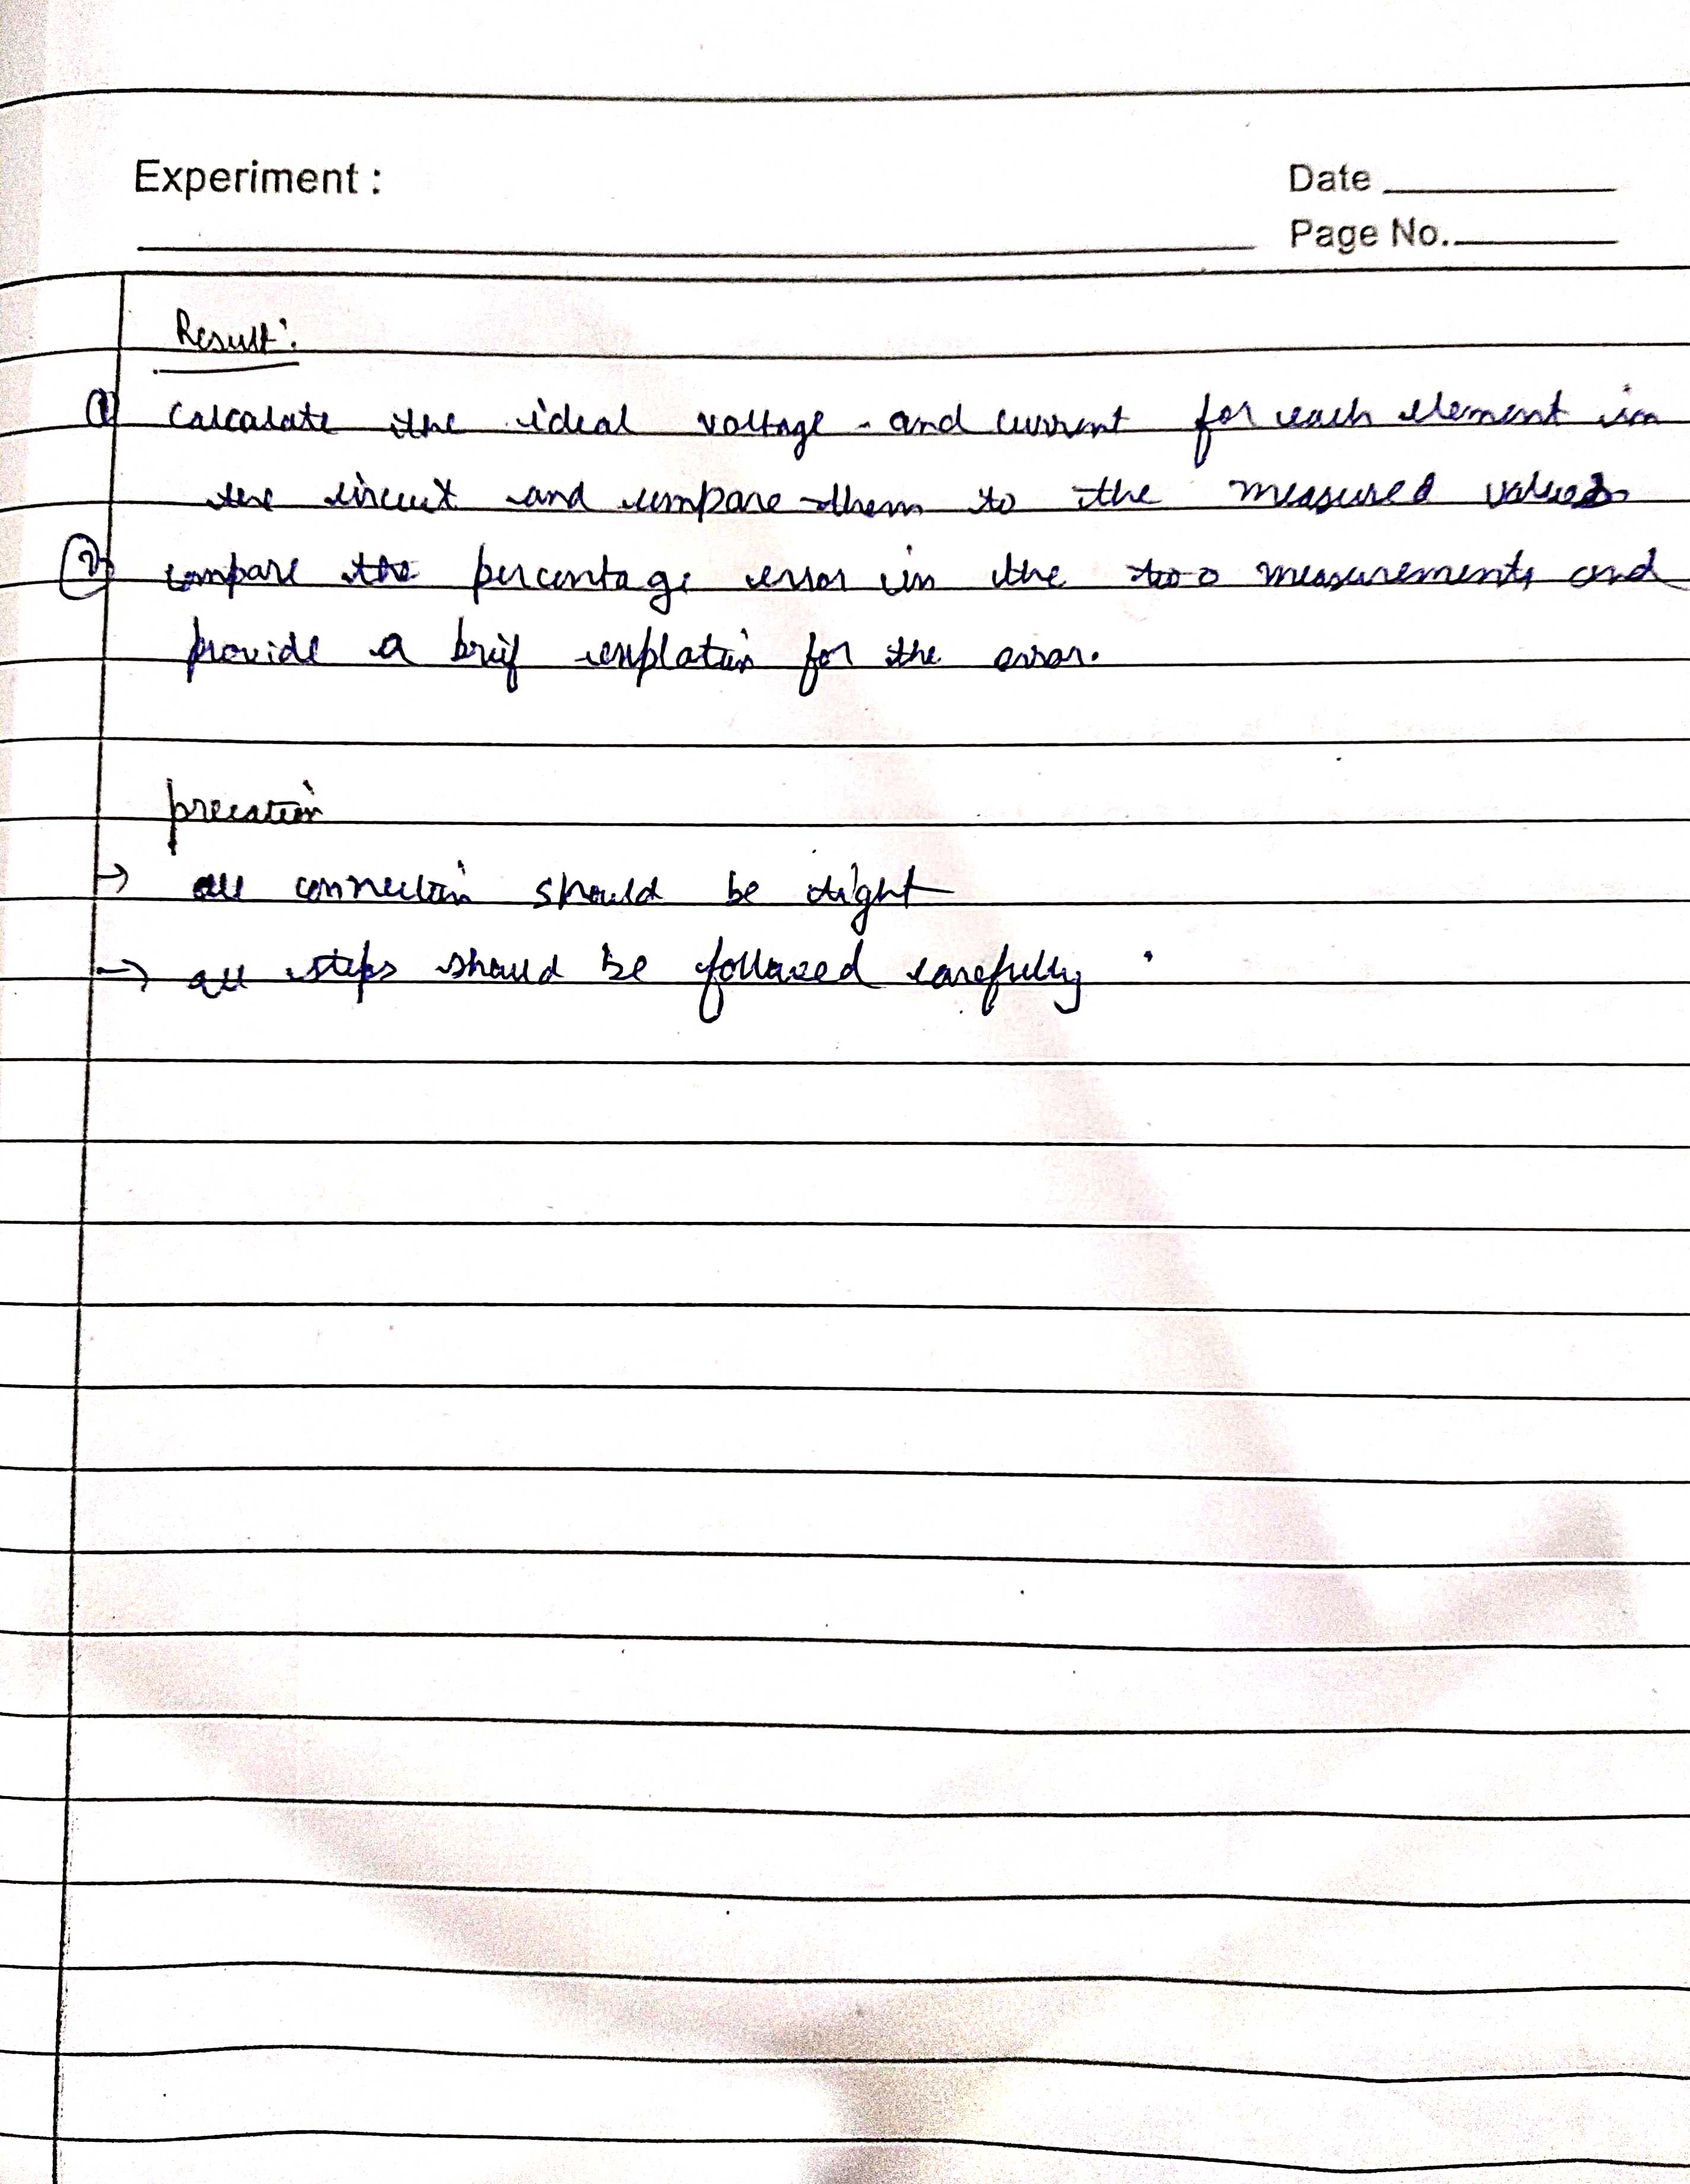 Experiment :
Date
Page No.
Result:
① Calcalate the ideal voltage and current for each element in
the circuit and compare them to the measured values
② compare the percentage error in the two measurements and
provide a brief explatin for the error.
precation
→ all connection should be tight
→ all steps should be followed carefully.